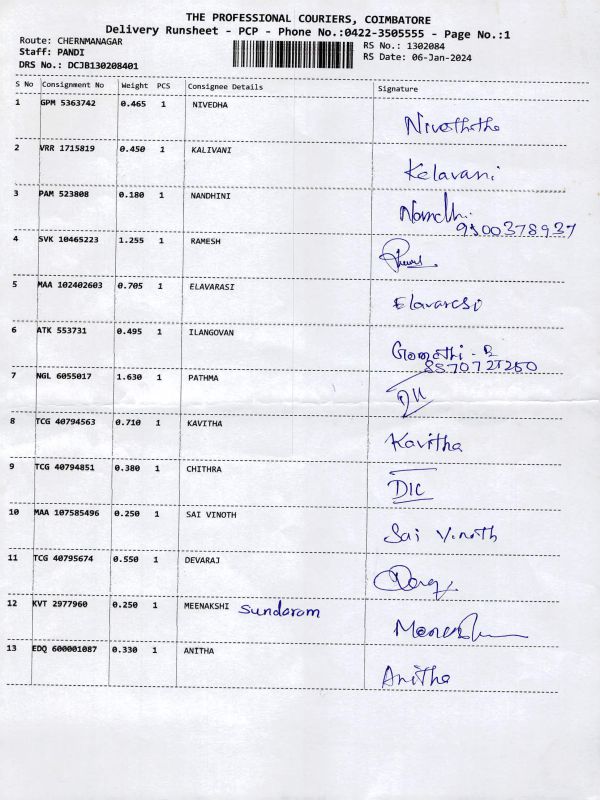 THE PROFESSIONAL COURIERS, COIMBATORE
Delivery Runsheet - PCP - Phone No.:0422-3505555 - Page No.:1
Route: CHERNMANAGAR
RS No.: 1302084
Staff: PANDI
RS Date: 06-Jan-2024
DRS No.: DCJB130208401
S No Consignment No Weight PCS Consignee Details Signature
1 GPM 5363742 0.465 1 NIVEDHA
Nivethitha
2 VRR 1715819 0.450 1 KALIVANI
Kelavani
3 PAM 523808 0.180 1 NANDHINI
9500378937
4 SVK 10465223 1.255 1 RAMESH
5 MAA 102402603 0.705 1 ELAVARASI
Elavarasi
6 ATK 553731 0.495 1 ILANGOVAN
Gomathi - B
7 NGL 6055017 1.630 1 PATHMA
8 TCG 40794563 0.710 1 KAVITHA
Kavitha
9 TCG 40794851 0.380 1 CHITHRA
DIC
10 MAA 107585496 0.250 1 SAI VINOTH
Sai Vinoth
11 TCG 40795674 0.550 1 DEVARAJ
12 KVT 2977960 0.250 1 MEENAKSHI Sundaram
13 EDQ 600001087 0.330 1 ANITHA
Anitha